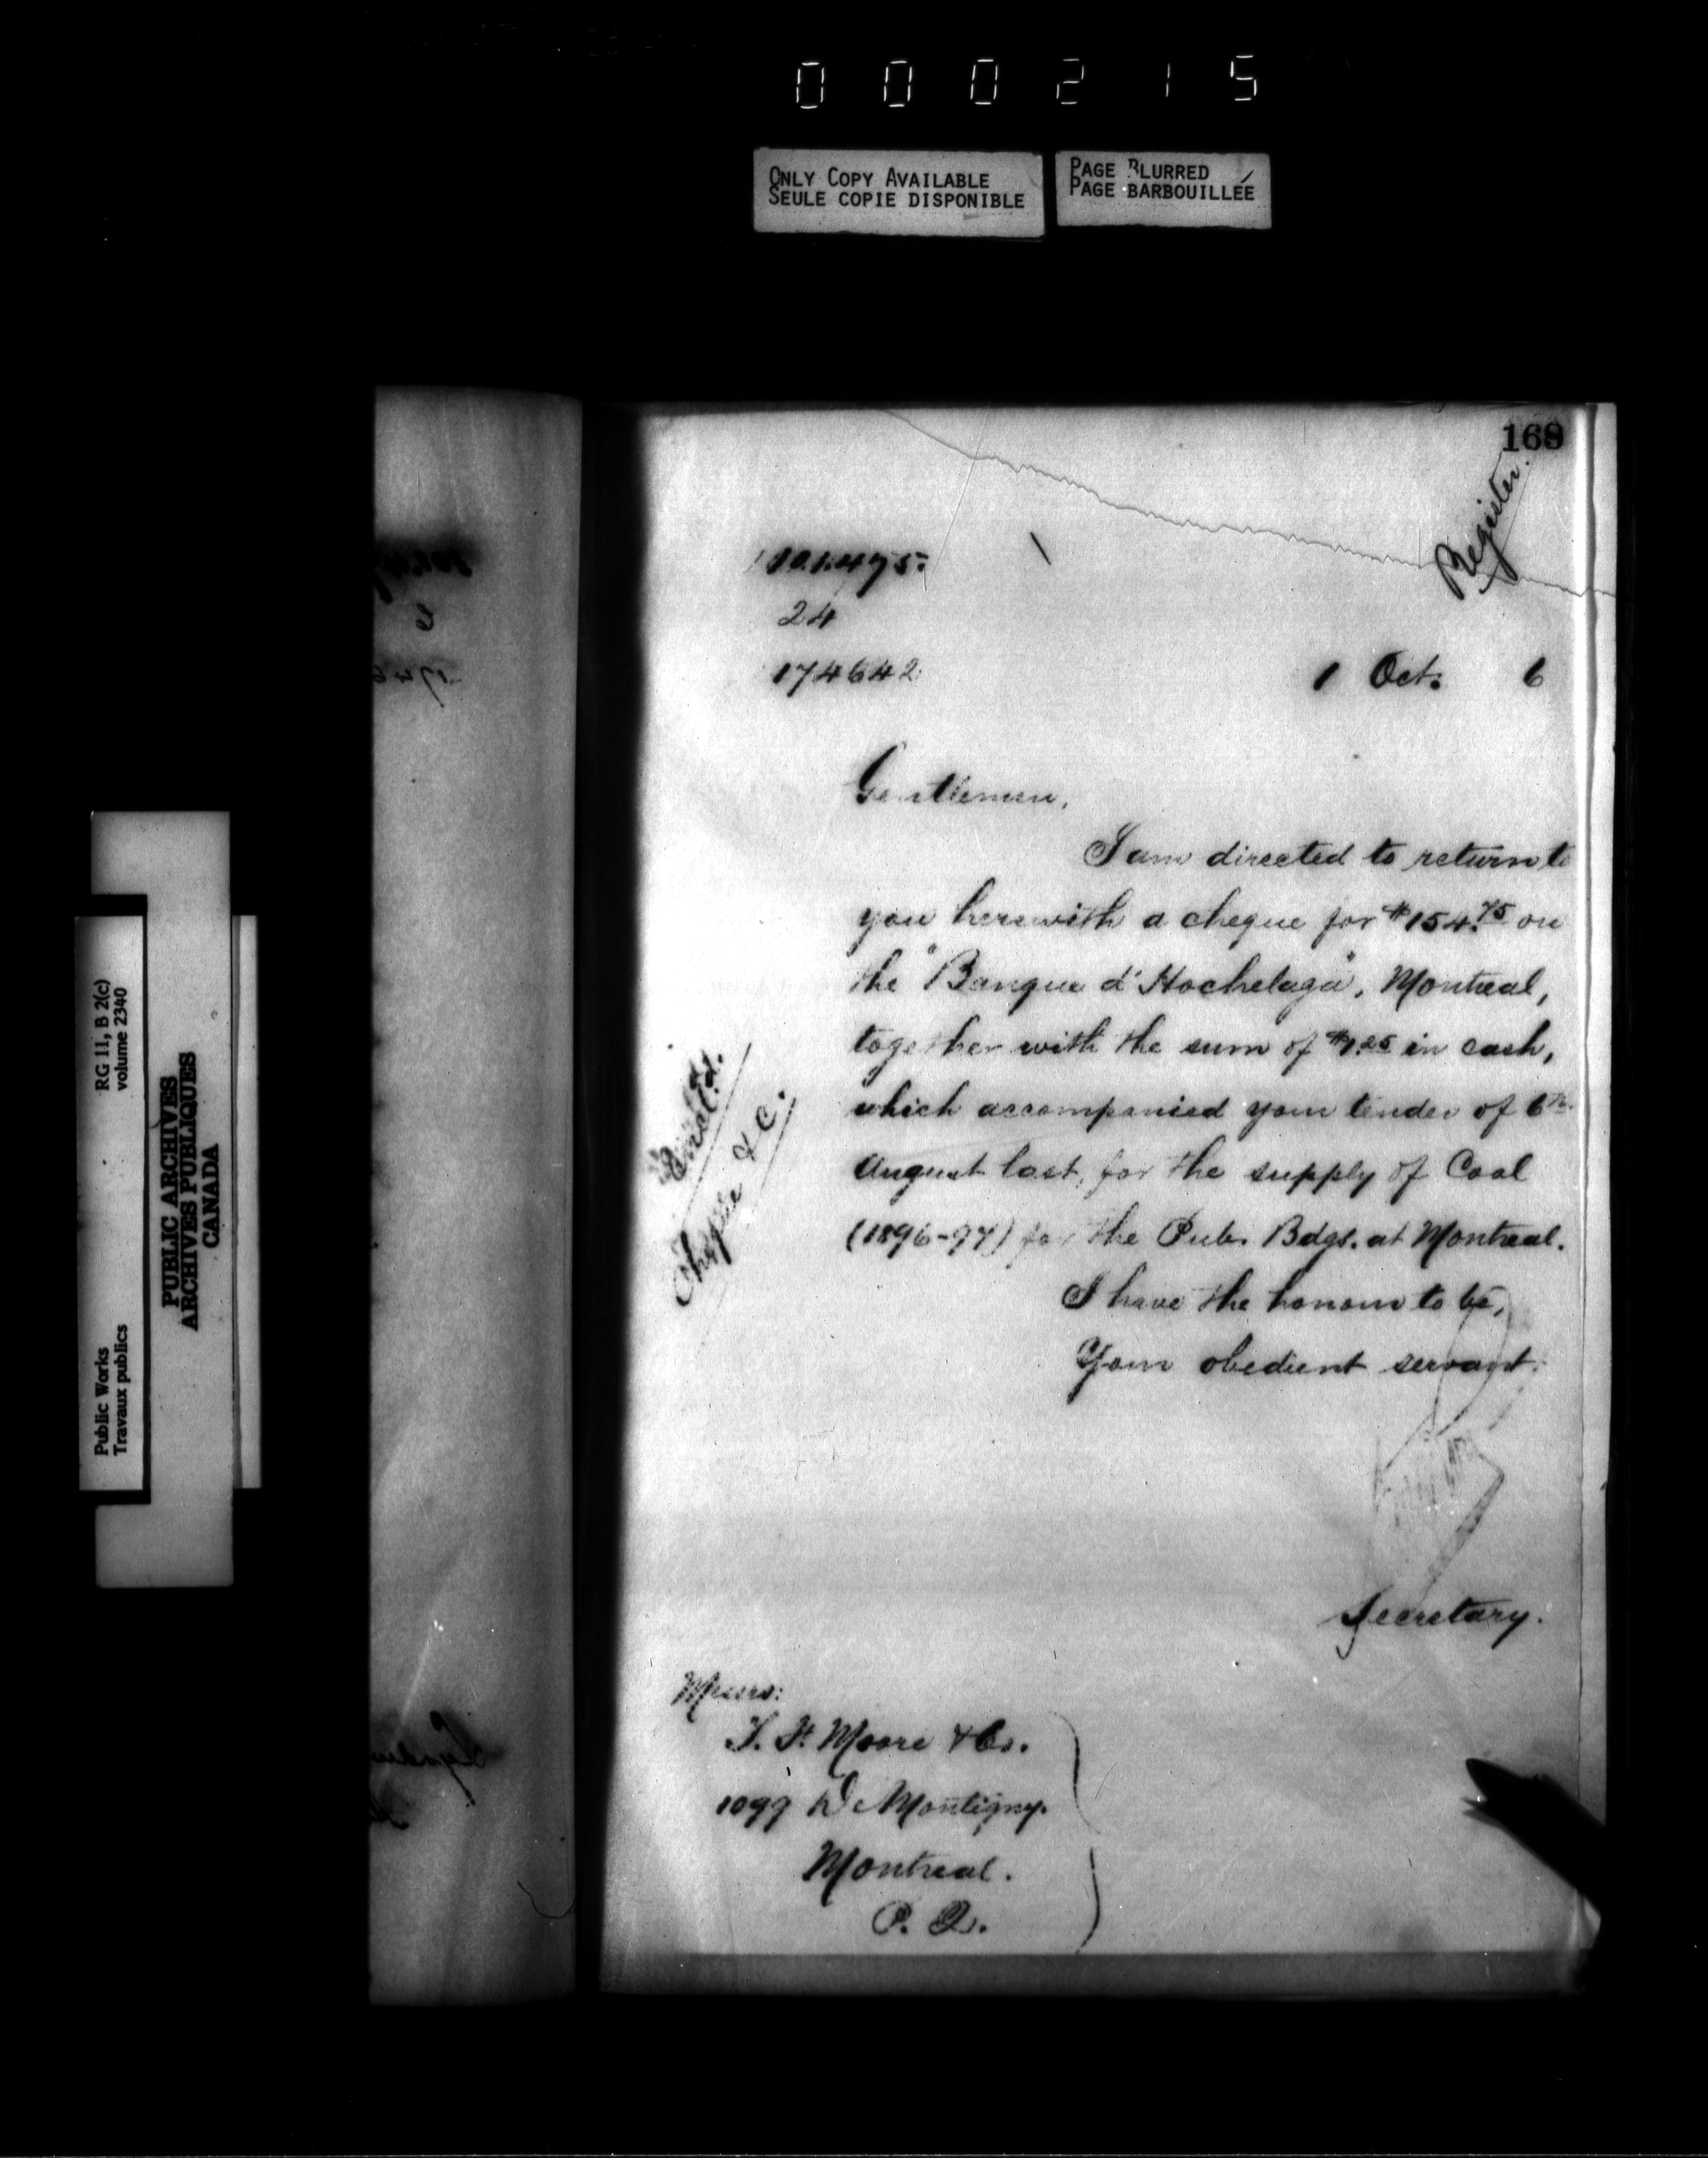 000215
ONLY COPY AVAILABLE
SEULE COPIE DISPONIBLE
PAGE BLURRED
PAGE BARBOUILLÉE
168
Register.
101.475.
24
174642
1 Oct. 6
Gentlemen,
I am directed to return to
you herewith a cheque for $154.75 on
the "Banque d'Hochelaga", Montreal,
together with the sum of $1.25 in cash,
which accompanied your tender of 6th
August last, for the supply of Coal
(1896-97) for the Pub. Bdgs. at Montreal.
I have the honour to be,
Your obedient servant.
Secretary.
Encl'd.
Cheque &c.
Messrs:
T. F. Moore & Co.
1099 De Montigny.
Montreal.
P. Q.
RG 11, B 2(c)
volume 2340
Public Works
Travaux publics
PUBLIC ARCHIVES
ARCHIVES PUBLIQUES
CANADA